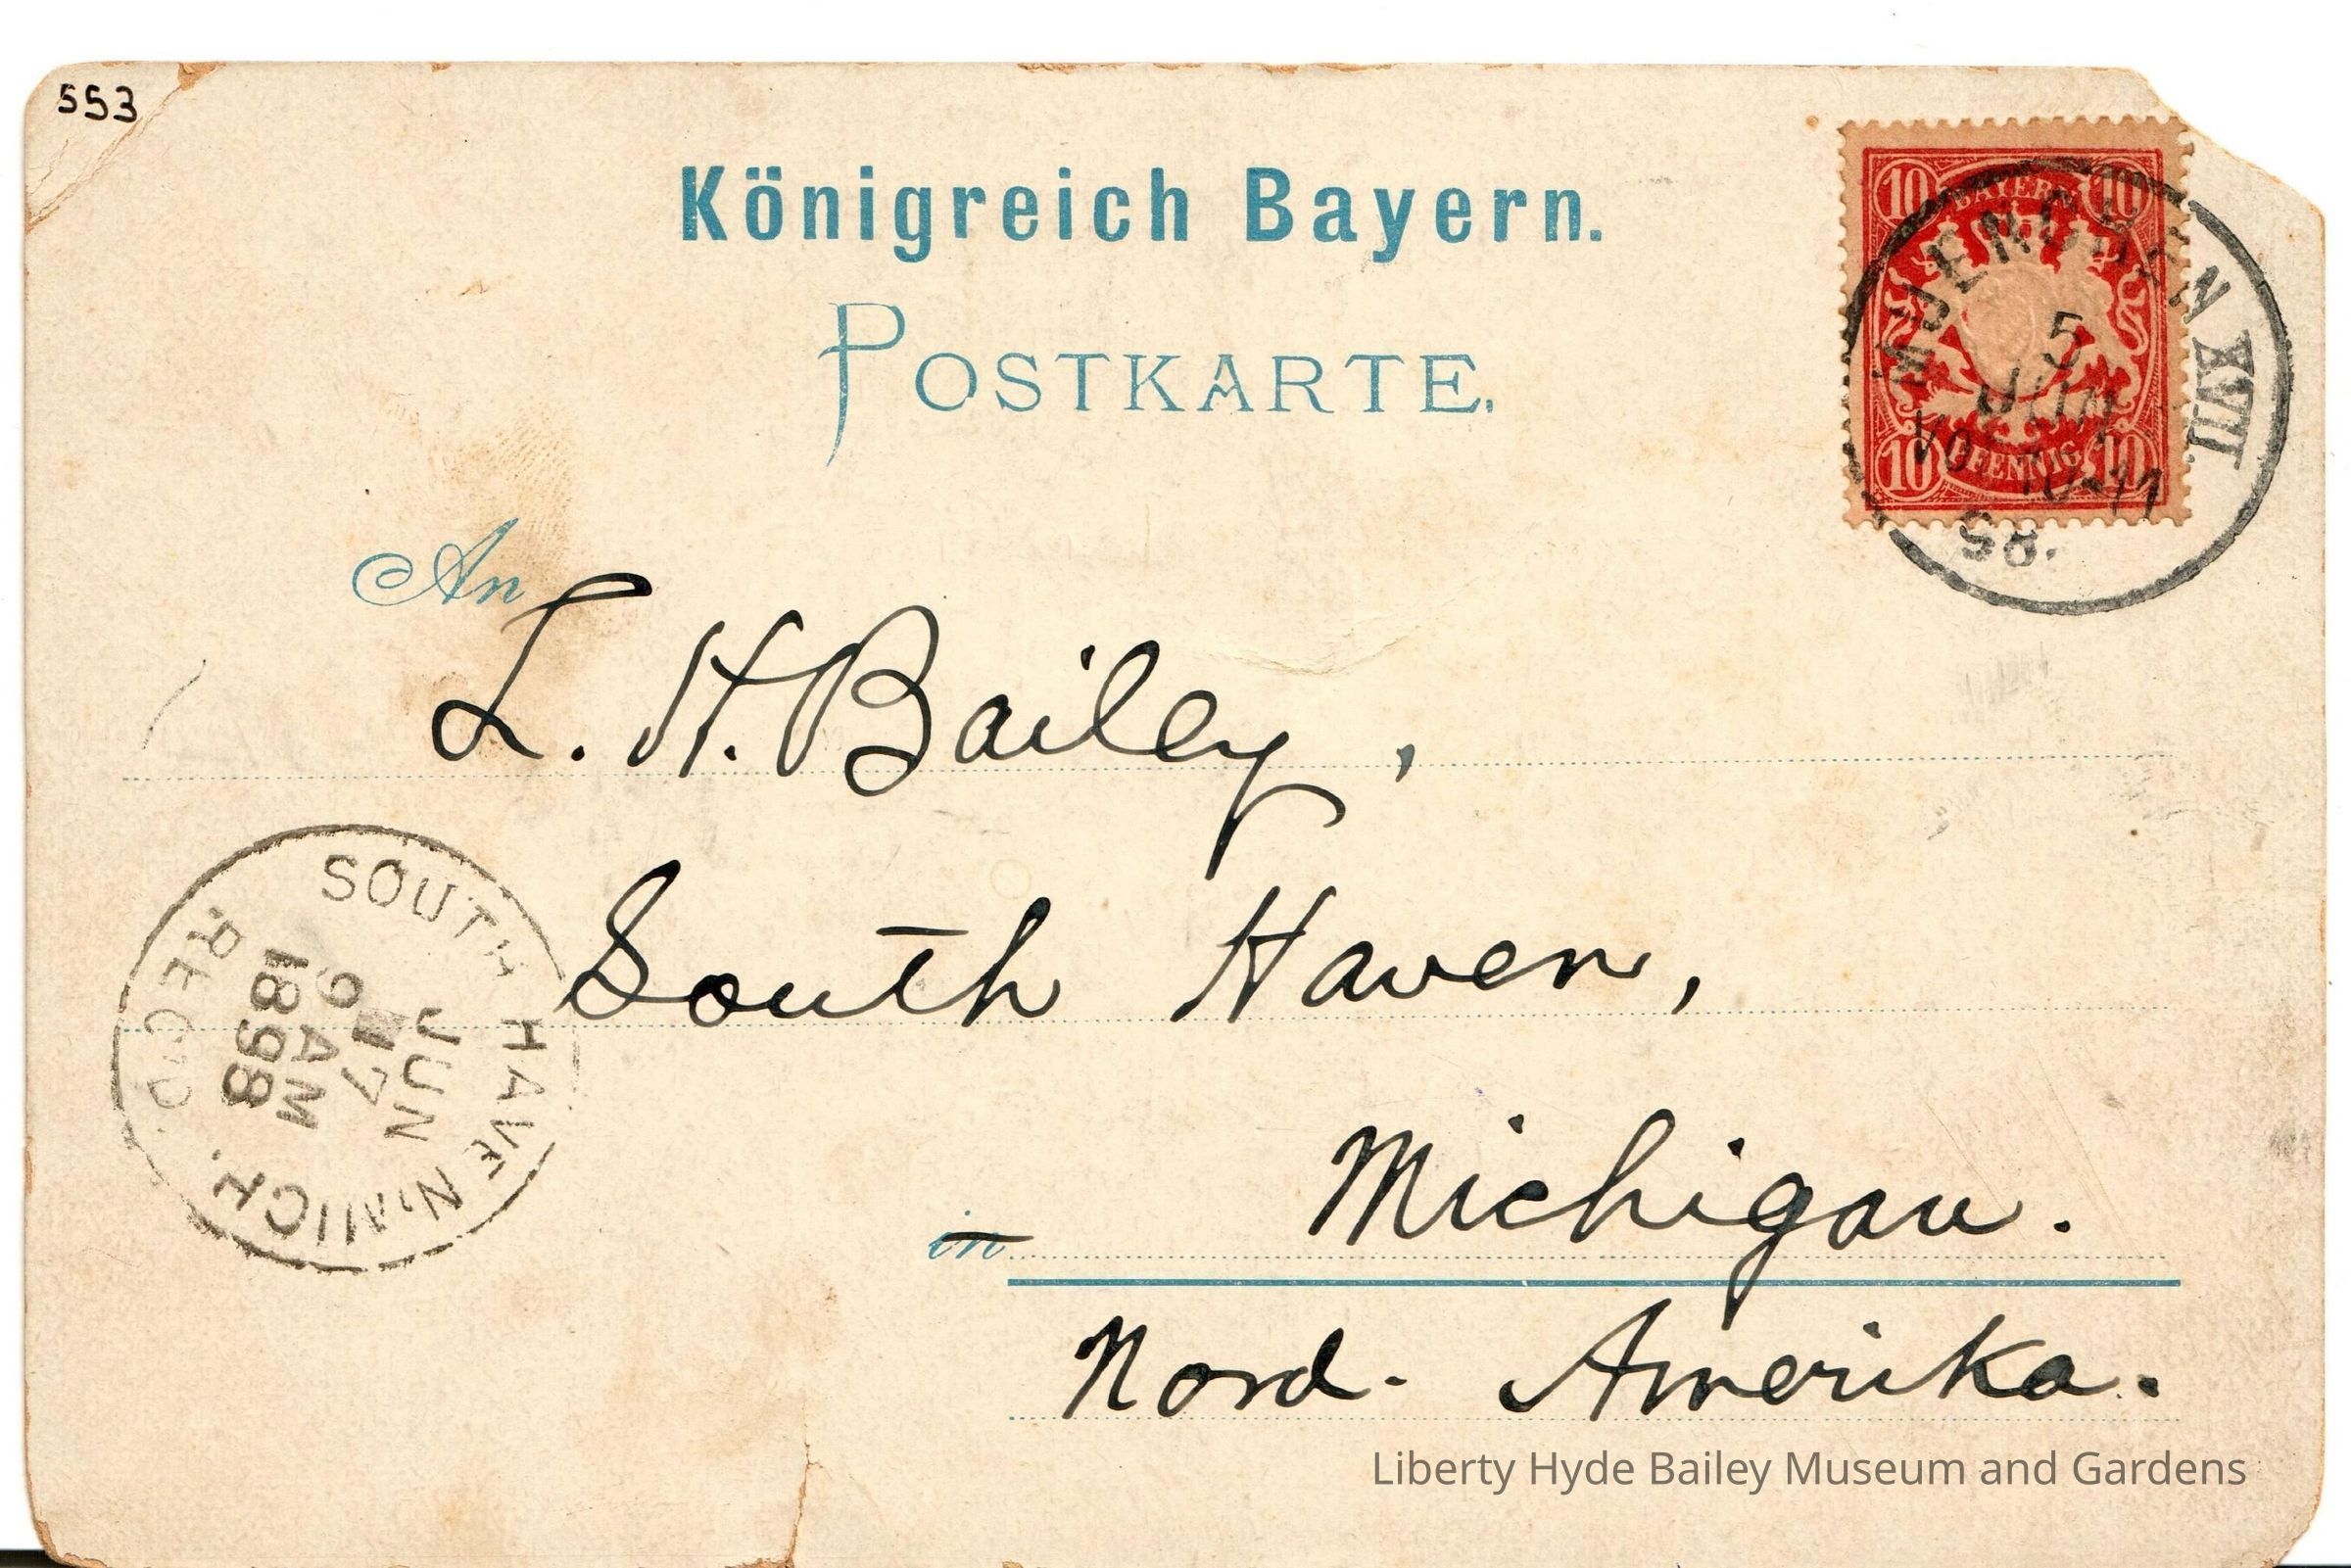 553
Königreich Bayern.
POSTKARTE.
10 BAYERN 10
10 PFENNIG 10
MUENCHEN XVII.
5
JUN
VO. 10-11
98.
An
L. H. Bailey,
South Haven,
in Michigan.
Nord-Amerika.
SOUTH HAVEN, MICH.
JUN
17
9 AM
1898
REC'D.
Liberty Hyde Bailey Museum and Gardens